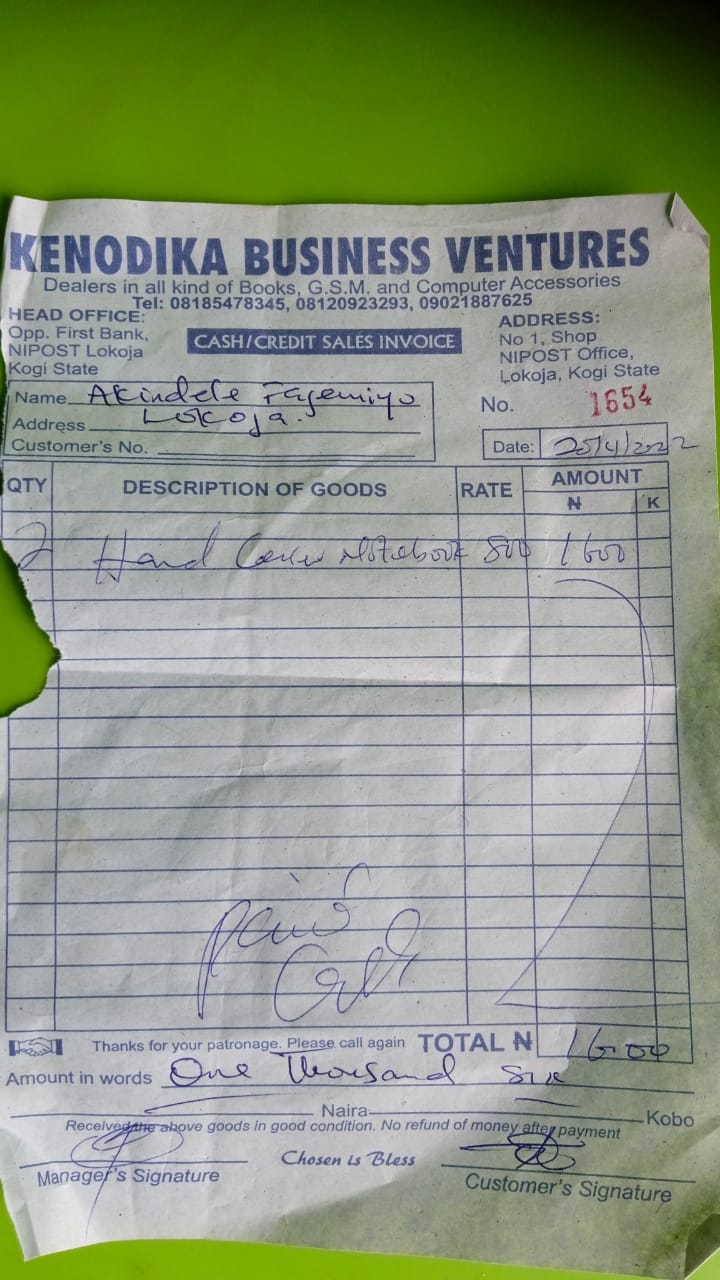 KENODIKA BUSINESS VENTURES
Dealers in all kind of Books, G.S.M. and Computer Accessories
Tel: 08185478345, 08120923293, 09021887625
HEAD OFFICE:
Opp. First Bank,
NIPOST Lokoja
Kogi State
CASH/CREDIT SALES INVOICE
ADDRESS:
No 1, Shop
NIPOST Office,
Lokoja, Kogi State
Name Akindele Fasemiyo
Address Lokoja.
Customer's No.
No. 1654
Date: 20/4/2022
QTY DESCRIPTION OF GOODS RATE AMOUNT
₦ K
2 Hand Cover Notebook 800 1600
paid
Thanks for your patronage. Please call again TOTAL ₦ 1600
Amount in words One Thousand Six
Naira Kobo
Received the above goods in good condition. No refund of money after payment
Manager's Signature
Chosen is Bless
Customer's Signature